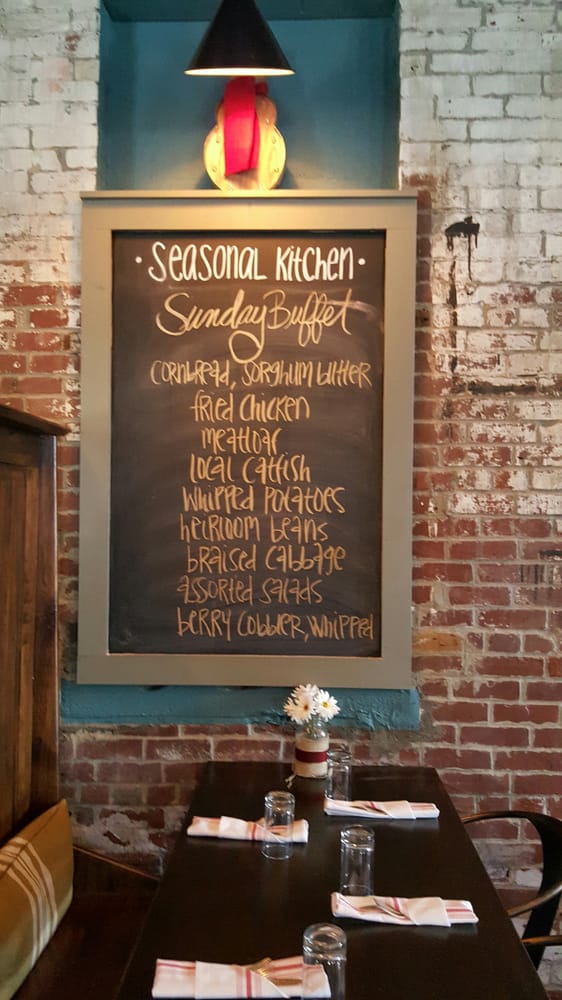 · Seasonal Kitchen ·
Sunday Buffet
cornbread, sorghum butter
fried chicken
meatloaf
local catfish
whipped potatoes
heirloom beans
braised cabbage
assorted salads
berry cobbler, whipped